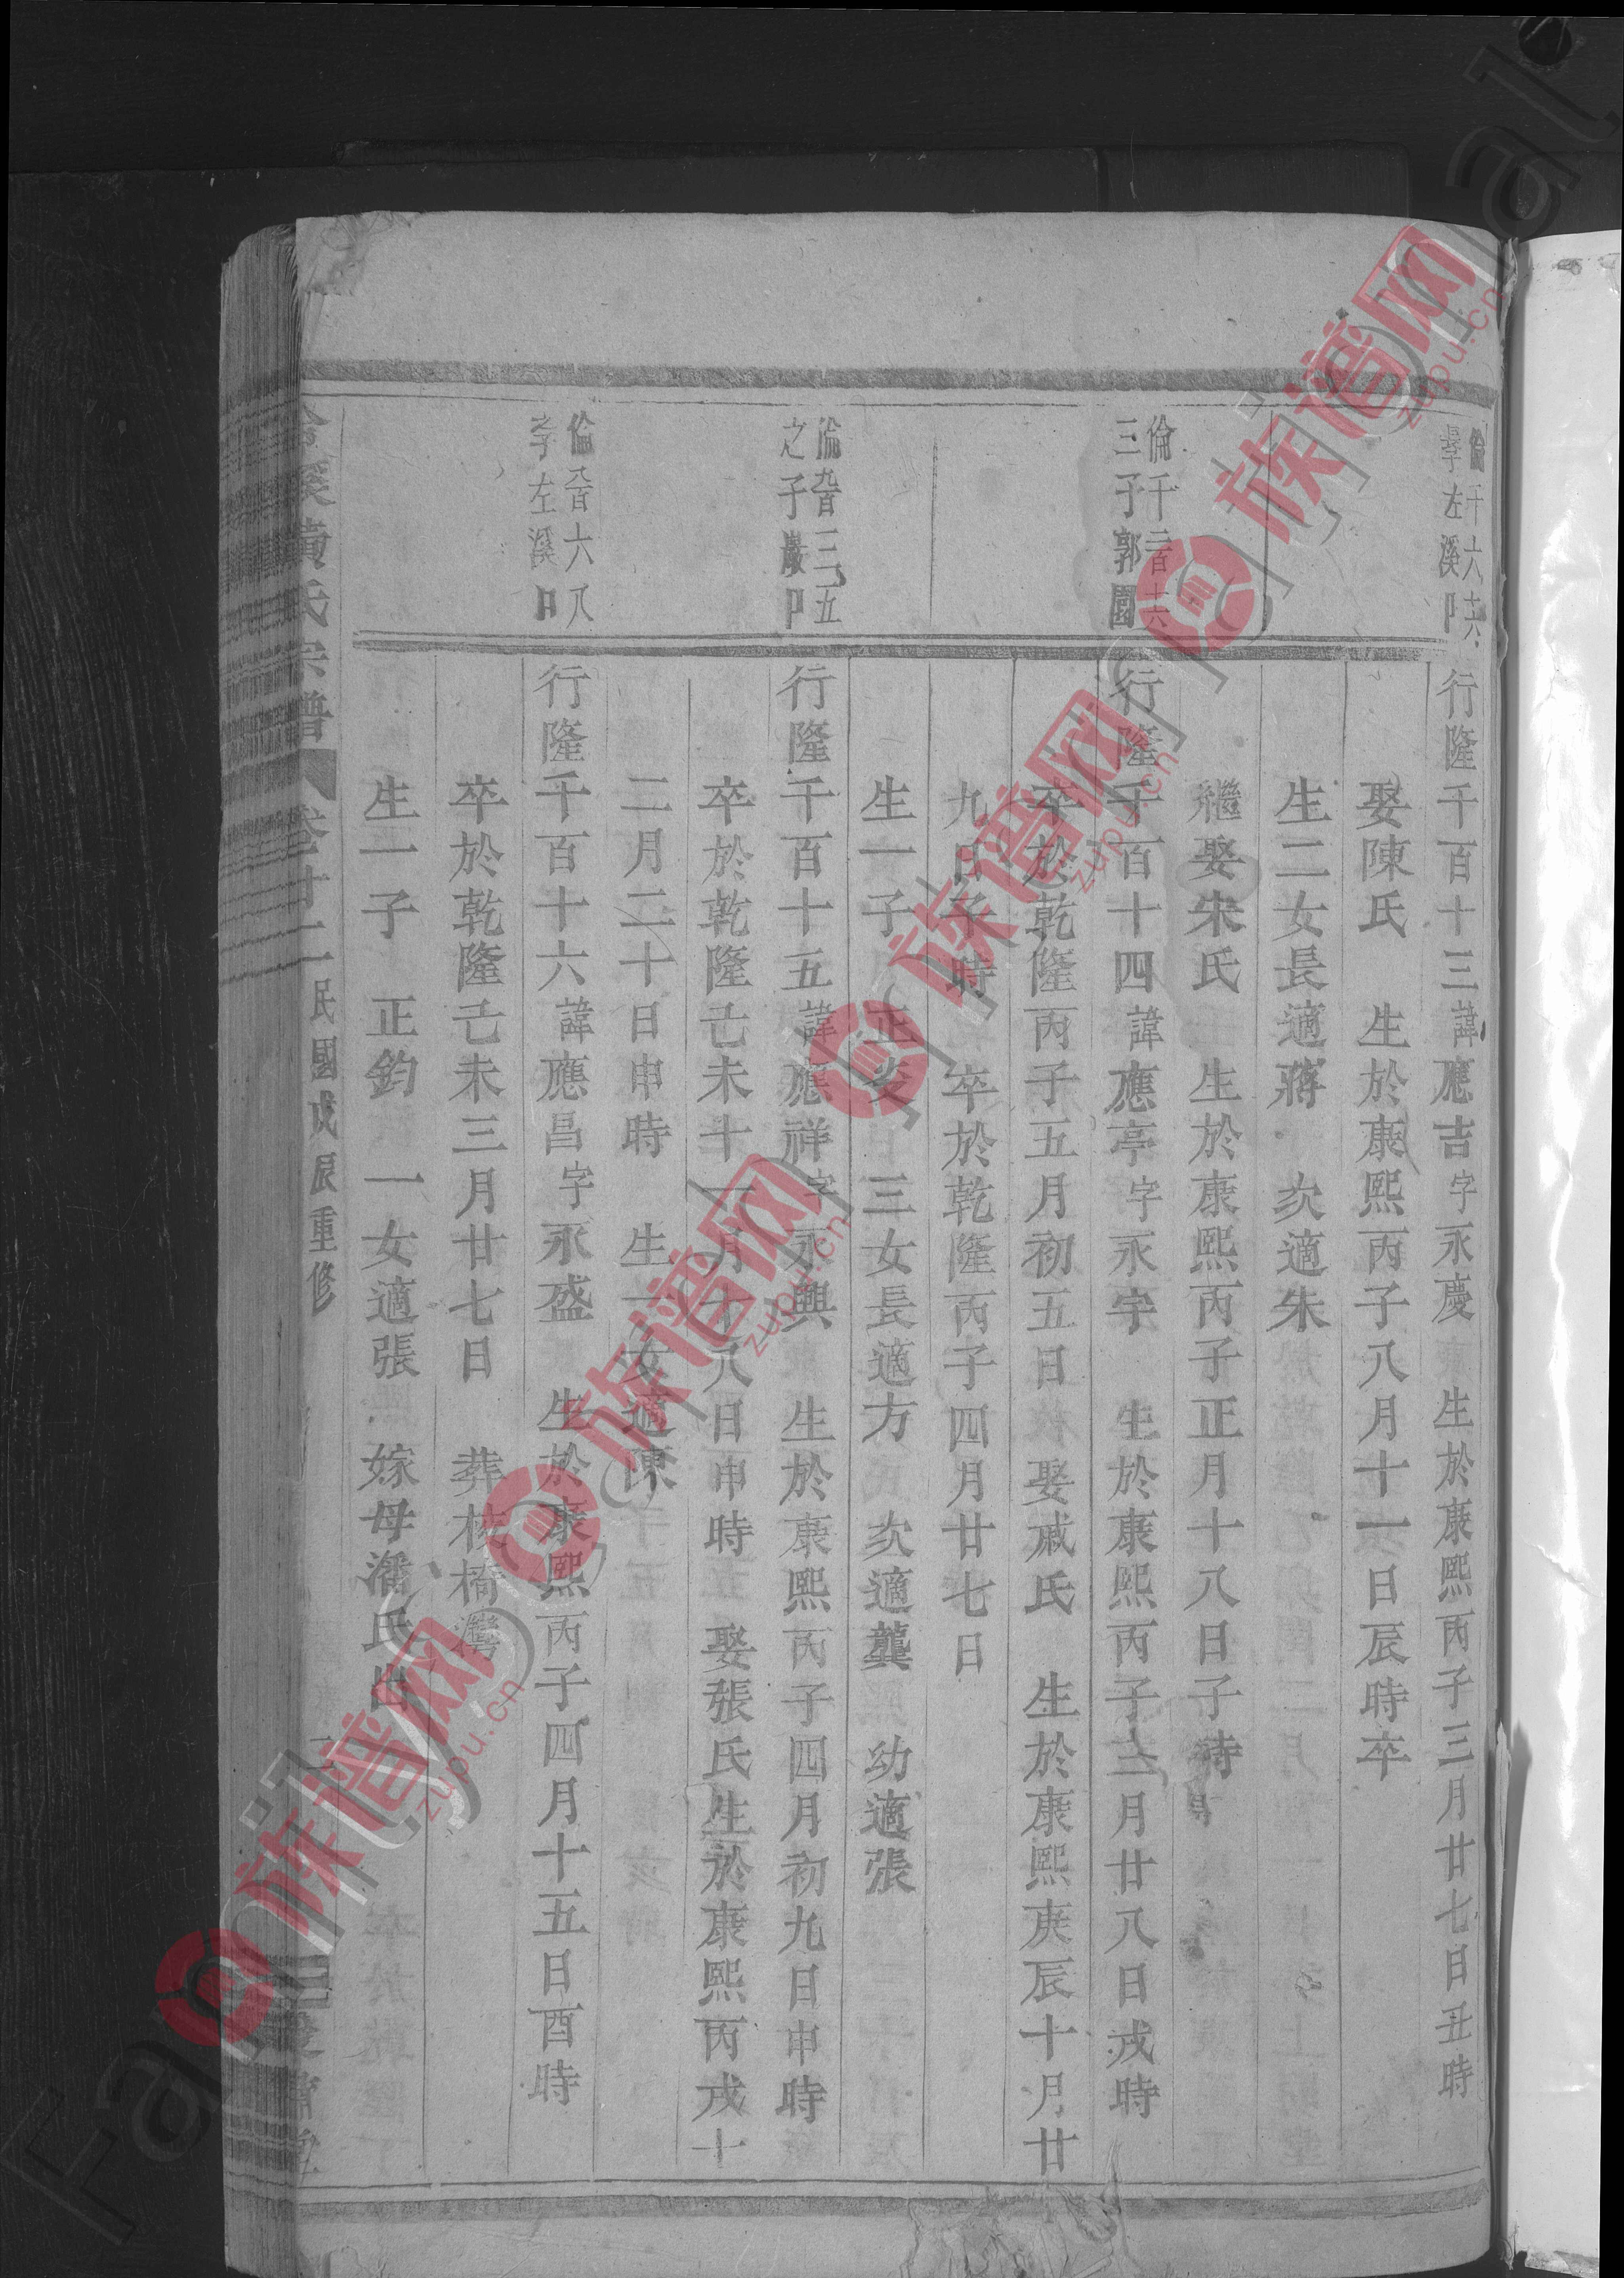 倫千六十六
孝左溪卩
行隆千百十三諱應吉字永慶 生於康熙丙子三月廿七日丑時
娶陳氏 生於康熙丙子八月十一日辰時卒
生二女長適蔣 次適朱
繼娶朱氏 生於康熙丙子正月十八日子時
倫千二百十六
三子郭園
行隆千百十四諱應亭字永宇 生於康熙丙子三月廿八日戌時
卒於乾隆丙子五月初五日 娶戚氏 生於康熙庚辰十月廿
九日子時 卒於乾隆丙子四月廿七日
生一子 正 三女長適方 次適龔 幼適張
倫九百三五
之子巖卩
行隆千百十五諱應祥字永興 生於康熙丙子四月初九日申時
卒於乾隆己未十一月十八日申時 娶張氏生於康熙丙戌十
二月二十日申時 生一女適陳
倫九百六八
孝左溪卩
行隆千百十六諱應昌字永盛 生於康熙丙子四月十五日酉時
卒於乾隆己未三月廿七日 葬枝橋灣
生一子 正鈞 一女適張 嫁母潘氏出
溪黃氏宗譜 卷十二 民國戊辰重修 二
族谱网
zupu.cn
族谱网
zupu.cn
族谱网
zupu.cn
族谱网
zupu.cn